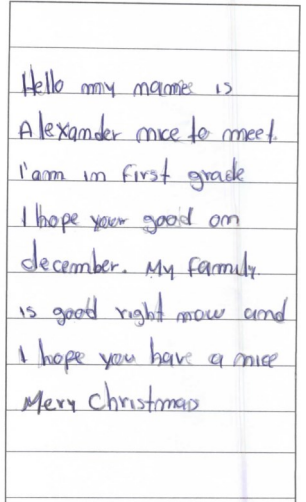 Hello my name is
Alexander nice to meet.
I'am in first grade
I hope your good on
december. My family.
is good right now and
I hope you have a nice
Mery Christmas